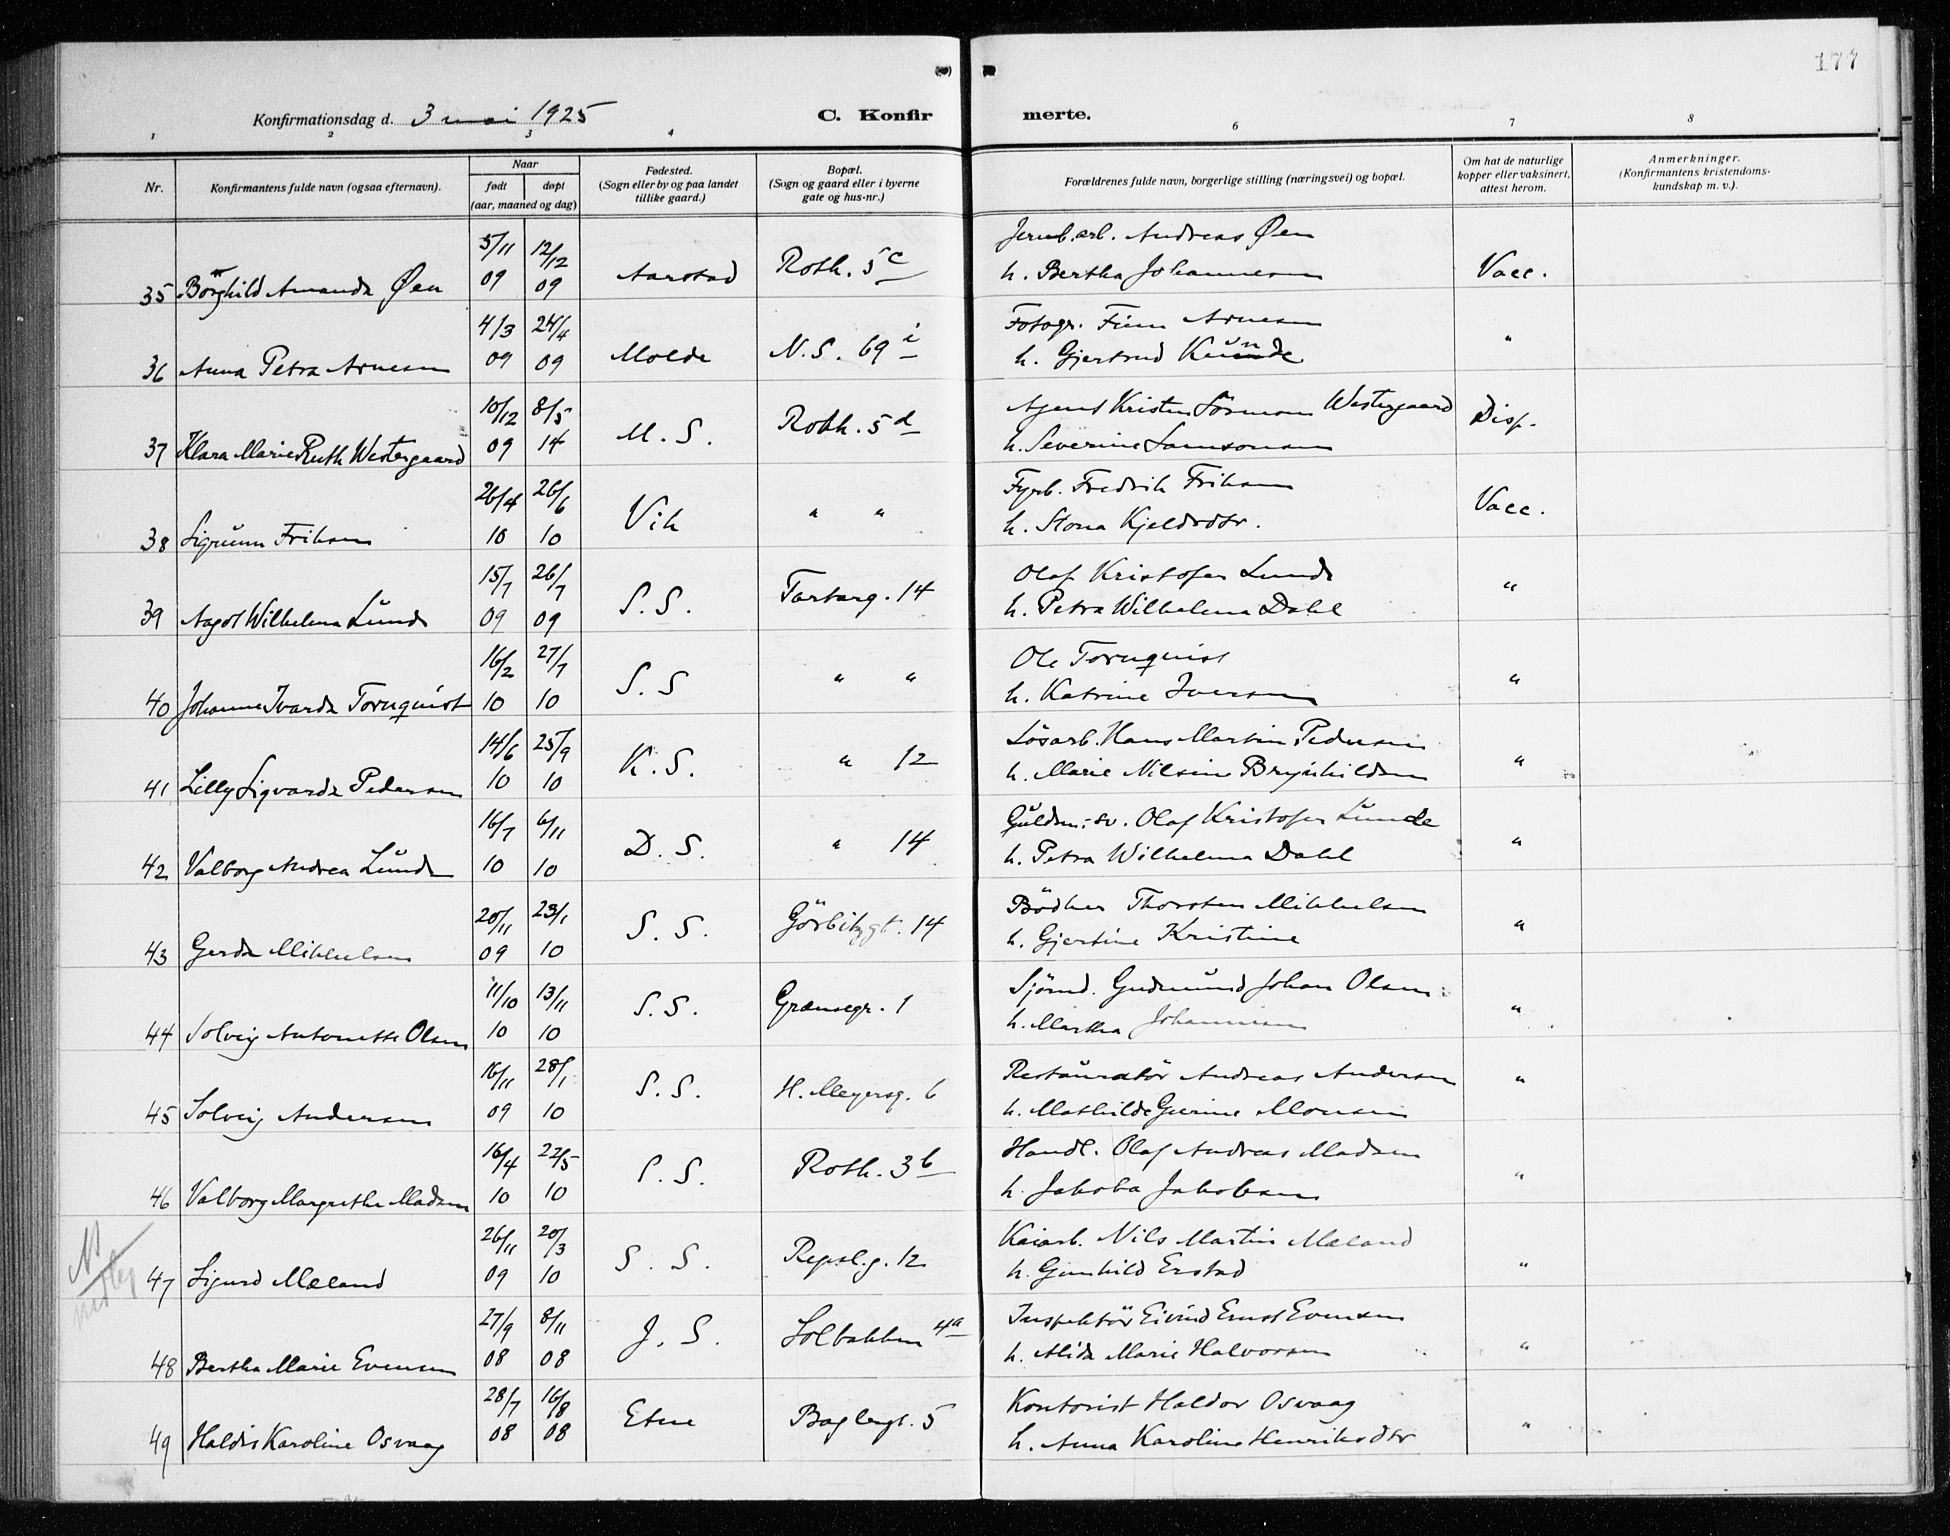 177
Konfirmationsdag d. 3 mai 1925 C. Konfirmerte.
1 2 3 4 6 7 8
Nr. Konfirmantens fulde navn (ogsaa efternavn). Naar født døpt (aar, maaned og dag) Fødested. (Sogn eller by og paa landet tillike gaard.) Bopæl. (Sogn og gaard eller i byerne gate og hus-nr.) Forældrenes fulde navn, borgerlige stilling (næringsvei) og bopæl. Om hat de naturlige kopper eller vaksinert, attest herom. Anmerkninger. (Konfirmantens kristendoms-kundskap m. v.).
5/11 12/12 Jernb.arb. Andreas Øen
35 Borghild Amanda Øen 09 09 Aarstad Roth. 5c h. Bertha Johannesen Vacc.
4/3 24/4 Fotogr. Finn Arnesen
36 Anna Petra Arnesen 09 09 Molde N.S. 69 i h. Gjertrud "
10/12 8/5 Agent Kristen Sörensen Westergaard
37 Klara Marie Ruth Westergaard 09 14 M. S. Roth. 5d h. Severine Samsonsen Disp.
26/4 26/6 Fyrb. Fredrik Eriksen
38 Sigrunn Eriksen 10 10 Vik " " h. Stona Kjeldsdtr. Vacc.
15/7 26/7 Olaf Kristofer Lunde
39 Aagot Wilhelma Lunde 09 09 S.S. Tartarg. 14 h. Petra Wilhelma Dahl "
16/2 27/7 Ole Tornquist
40 Johanne Ivarda Tornquist 10 10 S.S " " h. Katrine Iversen "
14/6 25/9 Lösarb. Hans Martin Pedersen
41 Lilly Sigvarda Pedersen 10 10 K.S. " 12 h. Marie Nilsine Brynhildsen "
16/7 6/11 Guldsm.sv. Olaf Kristofer Lunde
42 Valborg Andrea Lunde 10 10 D. S. " 14 h. Petra Wilhelma Dahl "
20/11 23/1 Bödker Thorsten Mikkelsen
43 Gerda Mikkelsen 09 10 S. S. Görbitzgt. 14 h. Gjertine Kristine "
11/10 13/11 Sjömd. Gudmund Johan Olsen
44 Solveig Antonette Olsen 10 10 S.S. Grænsegr. 1 h. Martha Johannesen "
16/11 28/1 Restauratör Andreas Andersen
45 Solveig Andersen 09 10 S.S. H. Meyersg. 6 h. Mathilde Gurine Monsen "
16/4 22/5 Handl. Olaf Andreas Madsen
46 Valborg Margrethe Madsen 10 10 S.S. Roth. 3b h. Jakoba Jakobsen "
26/11 20/3 Kaiarb. Nils Martin Mæland
47 Sigurd Mæland 09 10 S. S. Repsl.g. 12 h. Gunhild Erstad "
27/9 8/11 Inspektör Eivind Ernst Evensen
48 Bertha Marie Evensen 08 08 J. S. Solbakken 4a h. Alida Marie Halvorsen "
28/7 16/8 Kontorist Haldor Osvaag
49 Haldis Karoline Osvaag 08 08 Etne Baglergt. 5 h. Anna Karoline Henriksdtr "